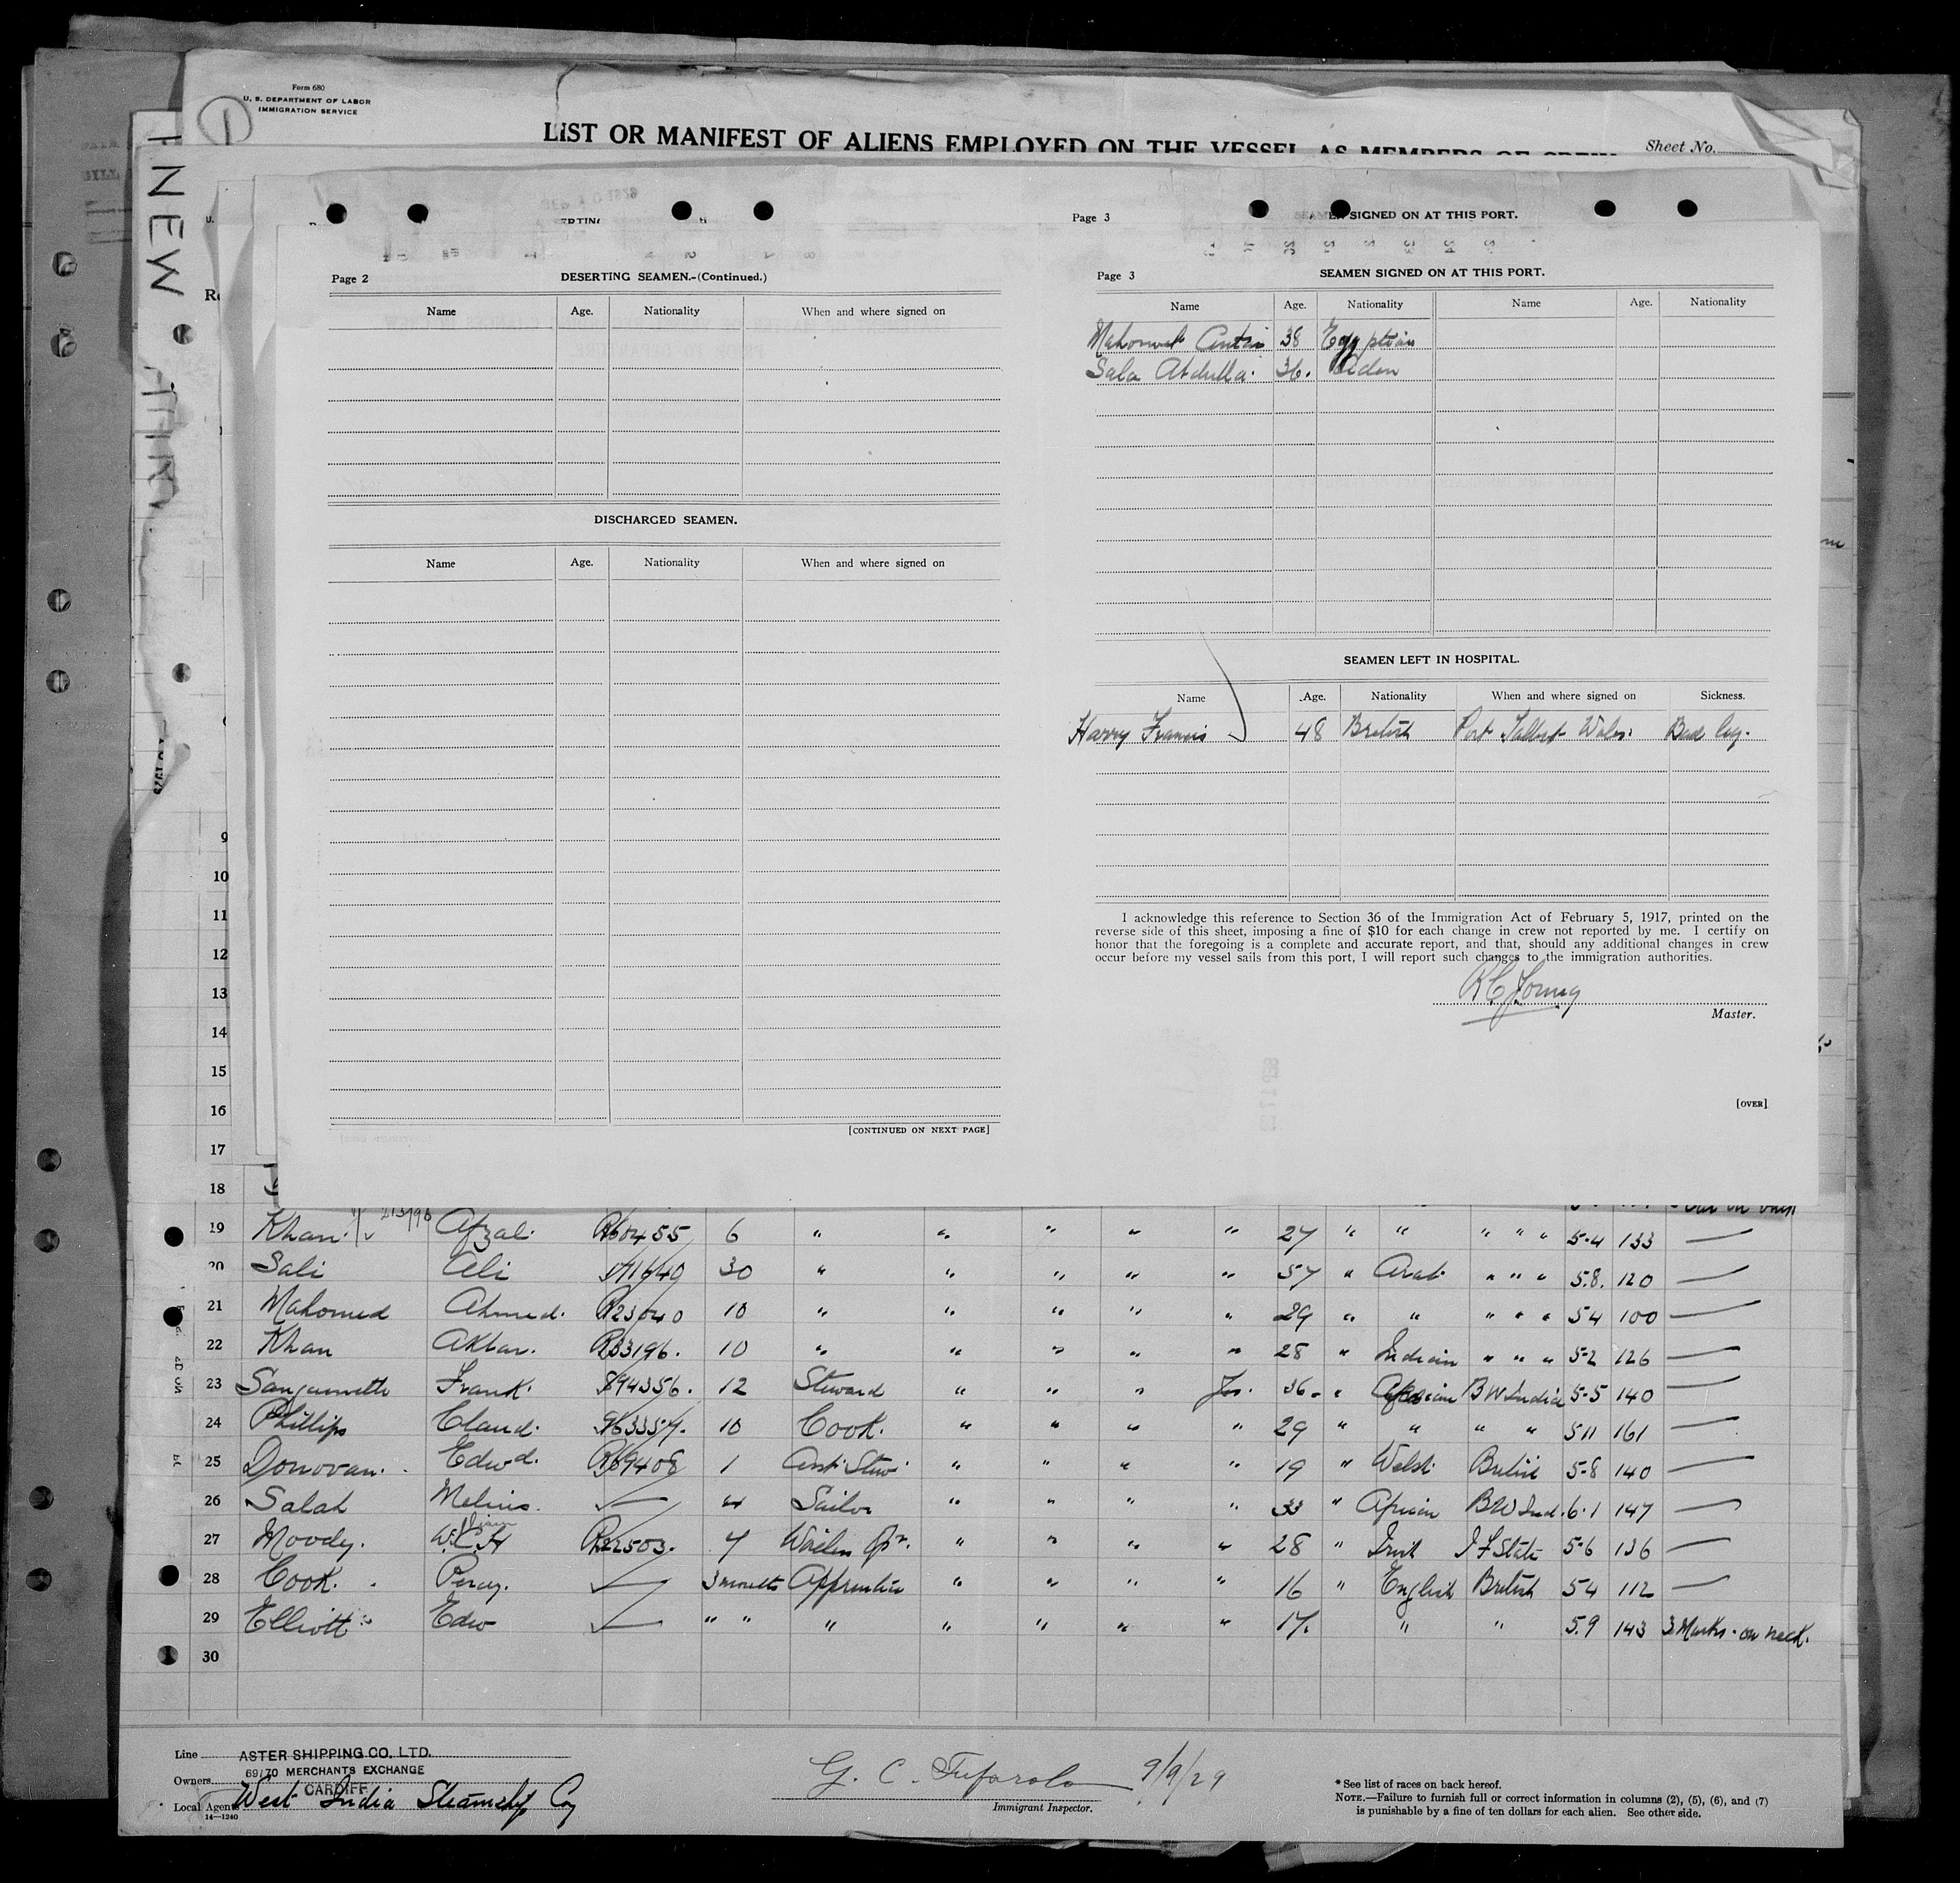 Form 680
U. S. DEPARTMENT OF LABOR
IMMIGRATION SERVICE
1
LIST OR MANIFEST OF ALIENS EMPLOYED ON THE VESSEL AS MEMBERS OF CREW
Sheet No.
NEW
Page 3
SEAMEN SIGNED ON AT THIS PORT.
Page 2
DESERTING SEAMEN.-(Continued.)
Name Age. Nationality When and where signed on
DISCHARGED SEAMEN.
Name Age. Nationality When and where signed on
[CONTINUED ON NEXT PAGE]
Page 3
SEAMEN SIGNED ON AT THIS PORT.
Name Age. Nationality Name Age. Nationality
38 Egyptian
Sala Abdulla. 36. Aden
SEAMEN LEFT IN HOSPITAL.
Name Age. Nationality When and where signed on Sickness.
Harry Francis 48 British Port Talbot Wales. Bad leg.
I acknowledge this reference to Section 36 of the Immigration Act of February 5, 1917, printed on the
reverse side of this sheet, imposing a fine of $10 for each change in crew not reported by me. I certify on
honor that the foregoing is a complete and accurate report, and that, should any additional changes in crew
occur before my vessel sails from this port, I will report such changes to the immigration authorities.
R C Young
Master.
[OVER]
9
10
11
12
13
14
15
16
17
18
19 Khan. Afzal. R60455 6 " " " " " 27 " " " " " 5-4 133 —
20 Sali Ali 30 " " " " " 57 " Arab " " " 5.8. 120 —
21 Mahomed Ahmed. R23040 10 " " " " " 29 " " " " " 5 4 100 —
22 Khan Akbar. R33196. 10 " " " " " 28 " Indian " " " 5-2 126 —
23 Frank. 894356. 12 Steward " " " 36 " B W India 5-5 140 —
24 Phillips Claud. 10 Cook. " " " " 29 " " " " 5 11 161 —
25 Donovan. Edwd. R69408 1 " " " " 19 " Welsh British 5-8 140 —
26 Salah 4 Sailor " " " " 33 " African B W Ind. 6.1 147 —
27 Moody. 7 " " " " 28 " Irish I F State 5-6 136 —
28 Cook. Percy. 3 months Apprentice " " " " 16 " English British 5 4 112 —
29 Elliott Edw " " " " " " " 17. " " 5.9 143 3 Marks on neck.
30
Line ASTER SHIPPING CO. LTD.
69/70 MERCHANTS EXCHANGE
Owners
CARDIFF
Local Agents West India Steamship Co
14—1240
G. C. Tufarolo 9/9/29
Immigrant Inspector.
* See list of races on back hereof.
NOTE.—Failure to furnish full or correct information in columns (2), (5), (6), and (7)
is punishable by a fine of ten dollars for each alien. See other side.